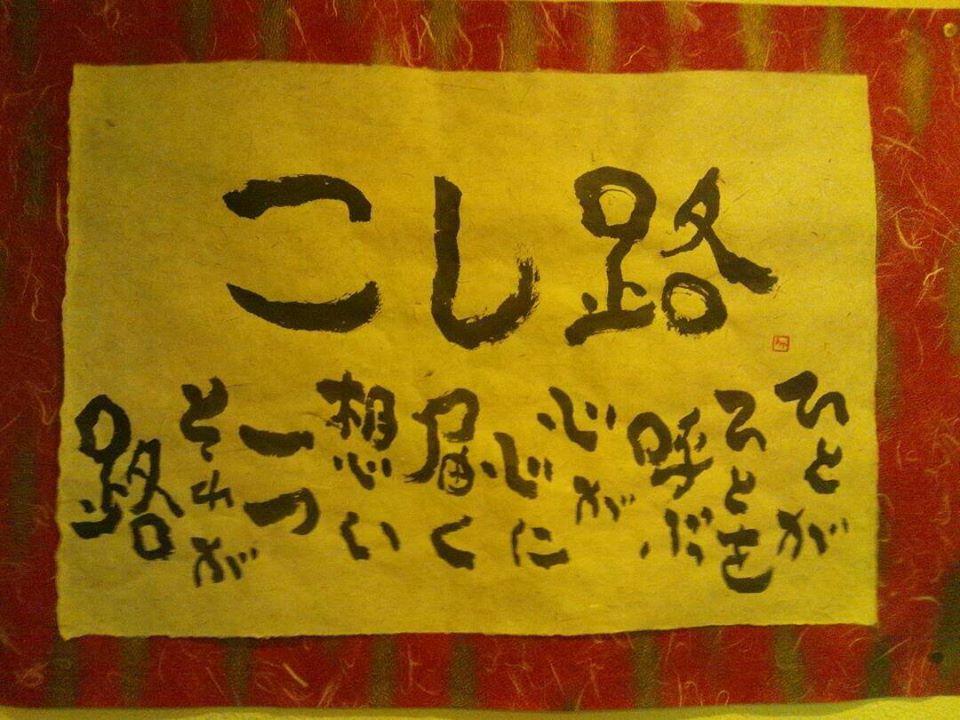 こし路
ひとが
ひとを
呼ぶ
心が
心に
届く
想い
一つ
それが
路